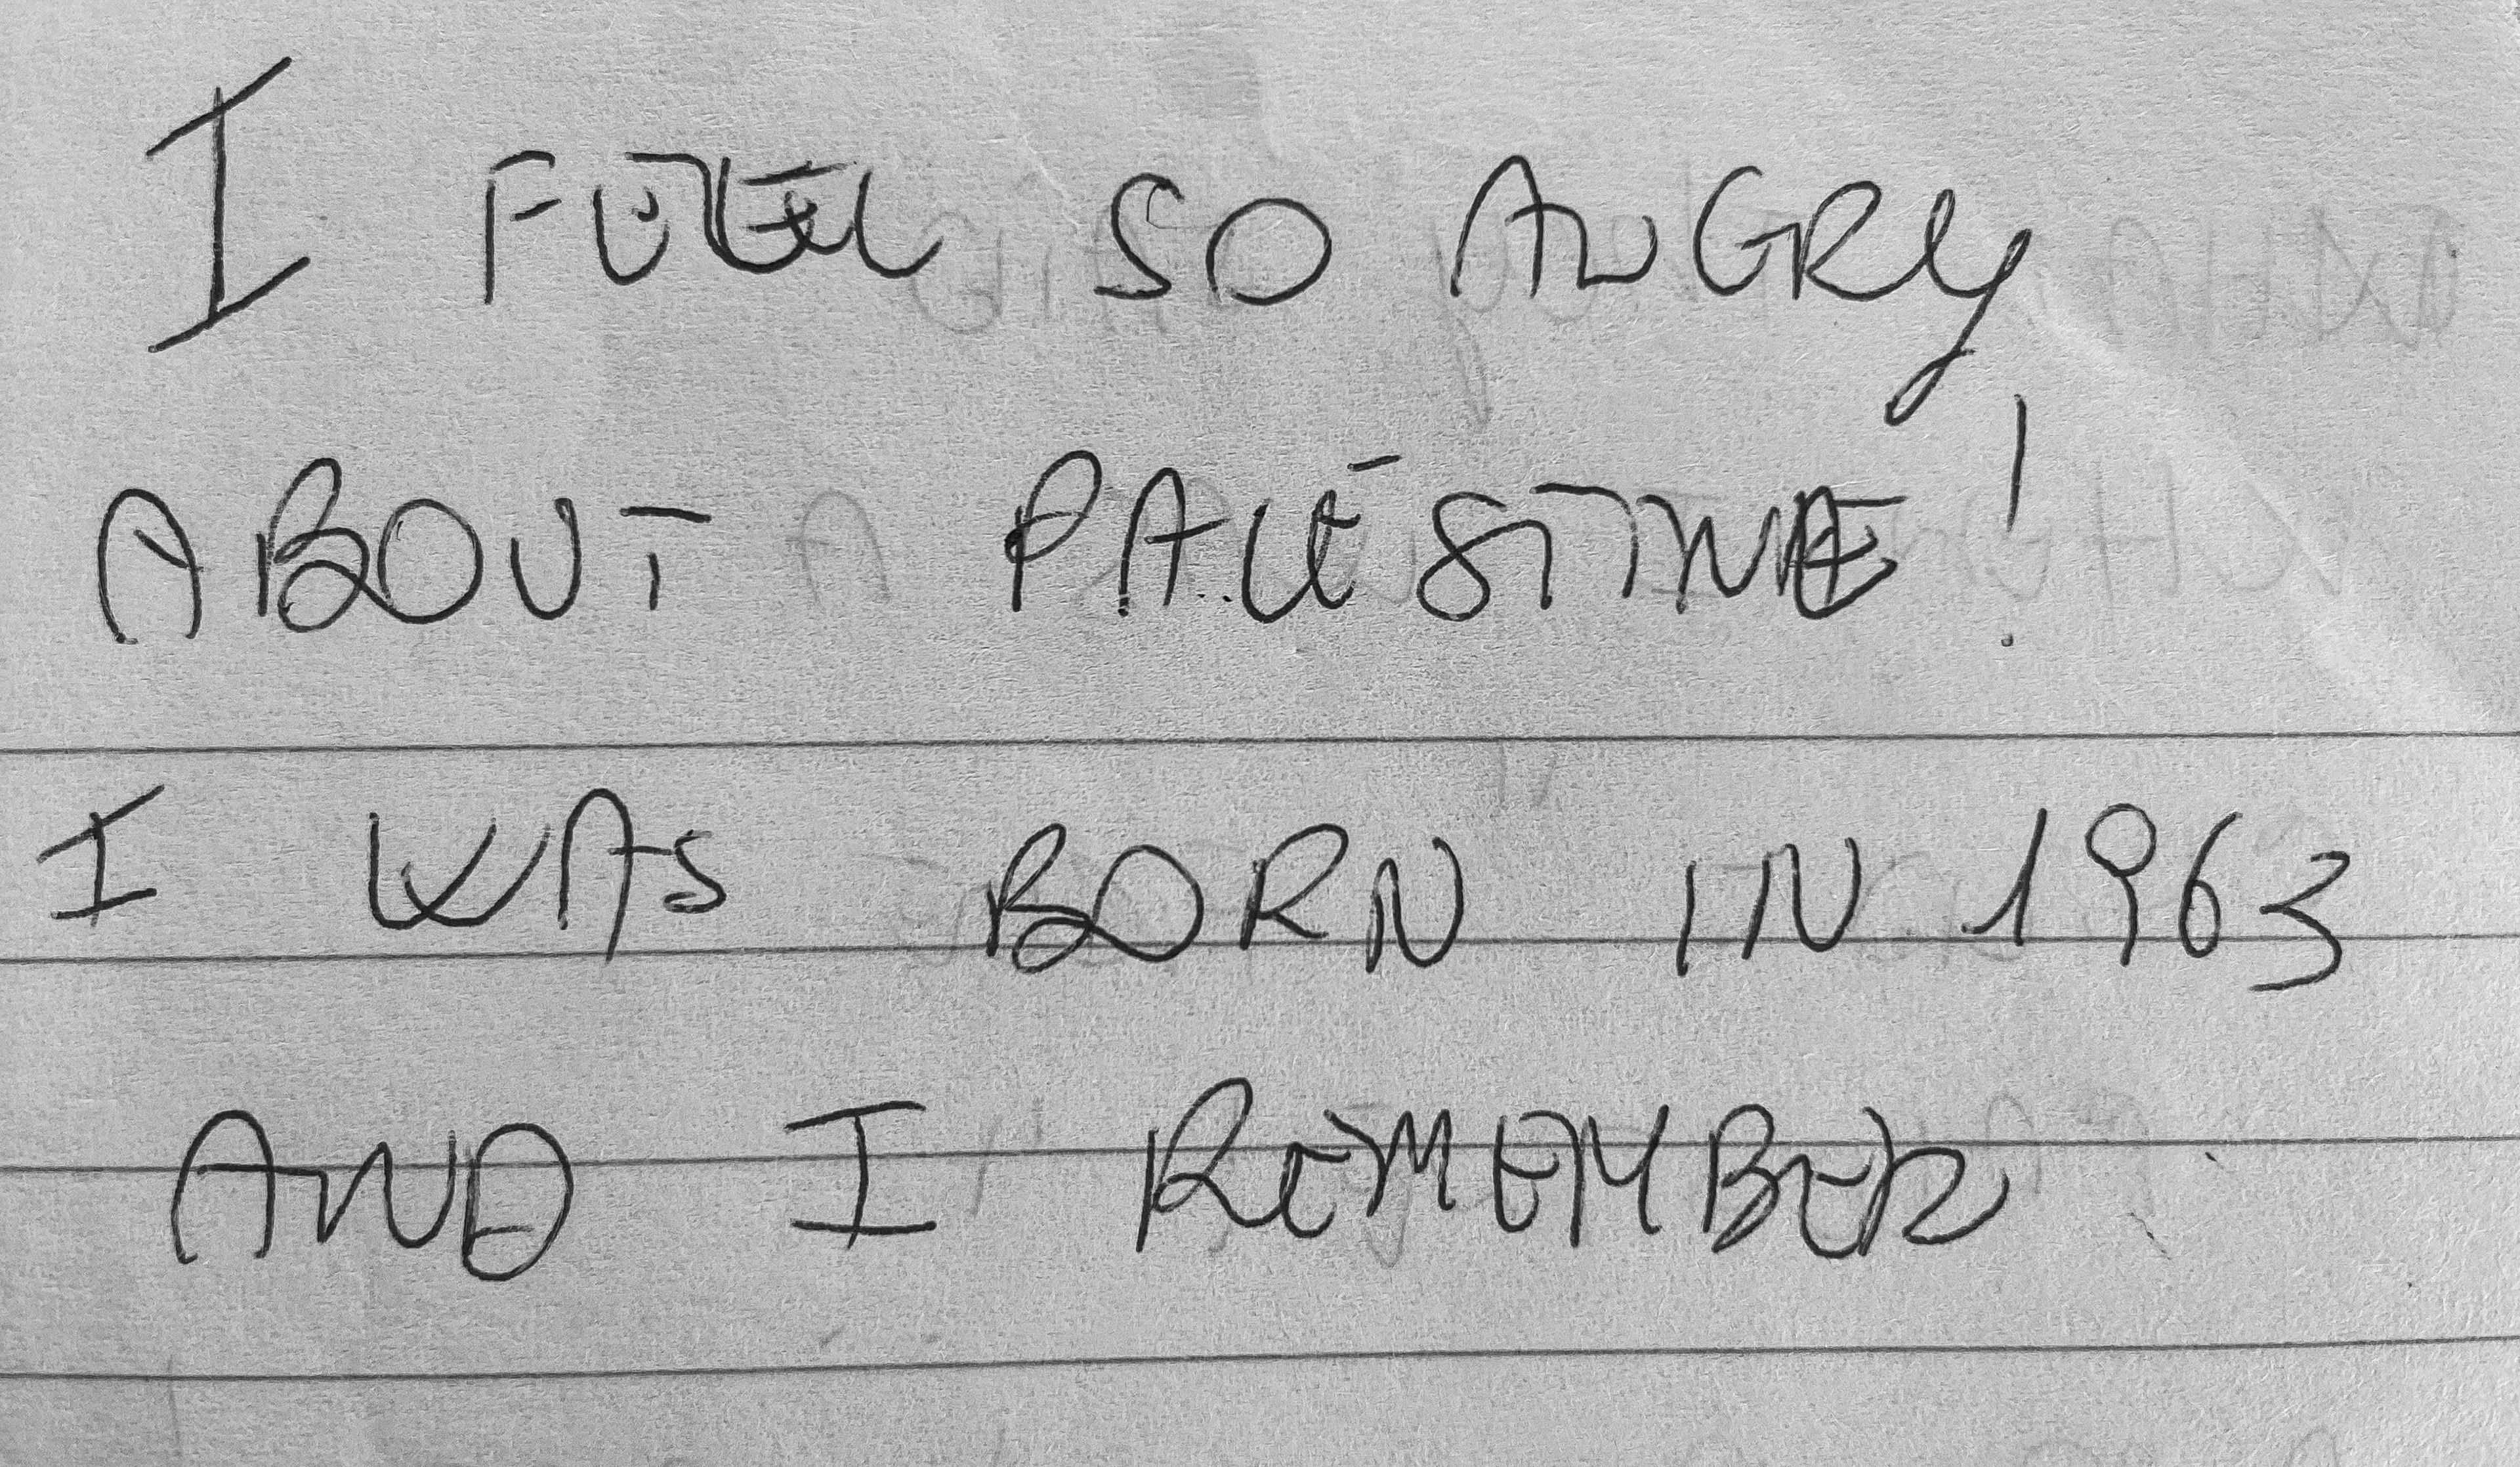 I FEEL SO ANGRY
ABOUT PALESTINE!
I WAS BORN IN 1963
AND I REMEMBER